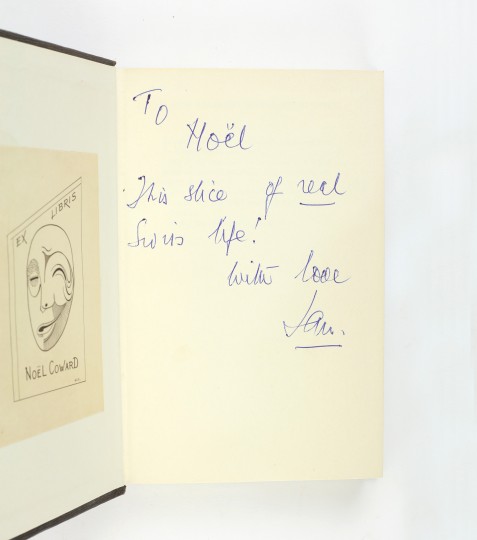 EX LIBRIS
NOËL COWARD
To
Noël
This slice of real
Swiss life!
With love
Ian.